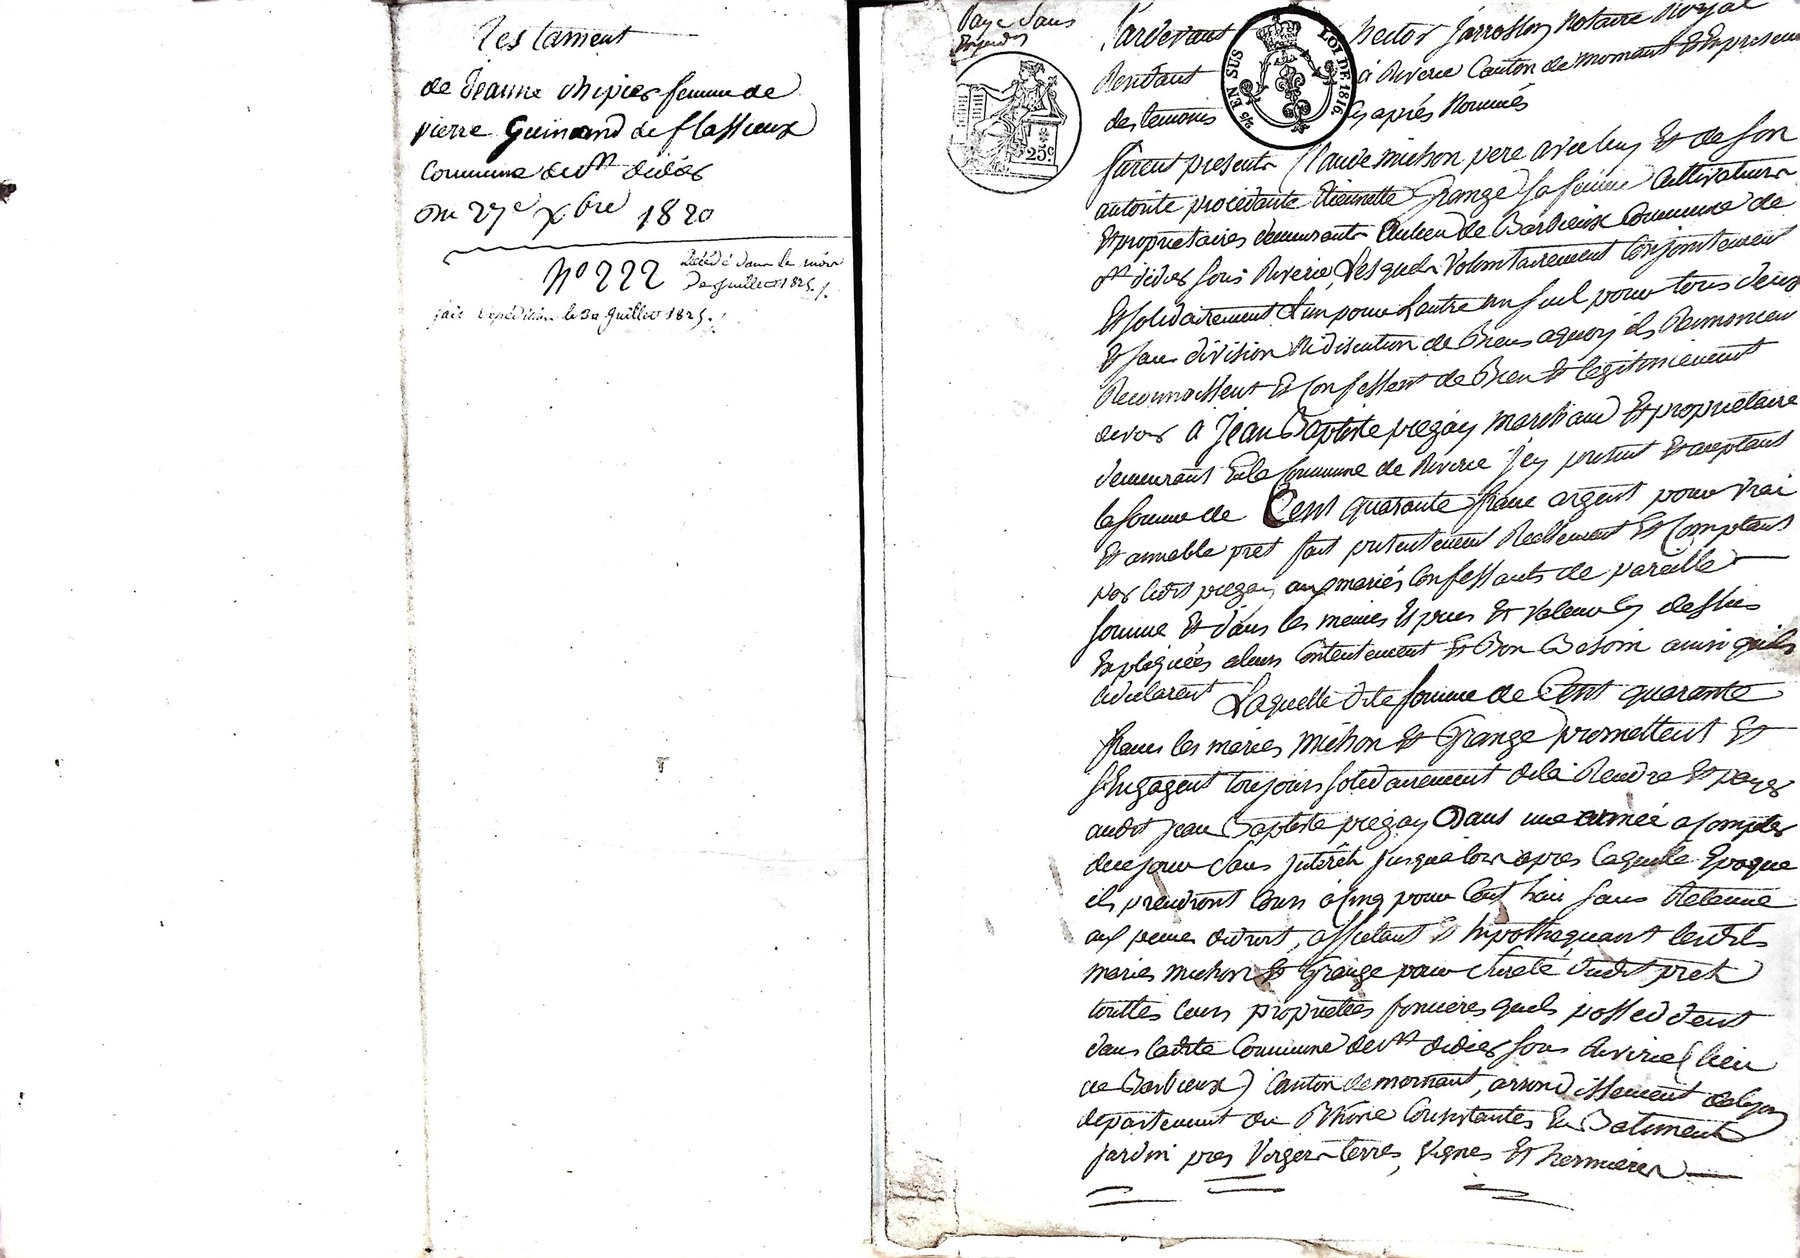 Testament
de Jeanne chipier femme de
pierre Guinand de flassieux
Commune de St didier
Du 27e xbre 1820
N° 222
Décédé dans le mois
De Juillet 1825
fait expédition le 30 Juillet 1825
Paye Sans
Pardevant hector Jarrosson Notaire Royal
Residant à Riverie Canton de mornant Et En presence
des temoins Cy après Nommés
EN SUS
LOI DE 1816.
25c
furent presents Claude michon pere avec luy Et de son
autorité procedante Grange sa femme Cultivateurs
Et proprietaires demeurants Au lieu de Barbieux Commune de
St didier sous Riverie, Lesquels Volontairement Conjointement
Et solidairement L'un pour L'autre un seul pour tous deux
Et sans division Ni discution de Biens aquoy ils Renoncent
Reconnoissent Et Confessent de Bien Et legitimement
devoir à Jean Baptiste pregay marchand Et proprietaire
demeurant En la Commune de Riverie icy present Et acceptant
la somme de Cent quarante franc argent pour vrai
Et amiable pret fait presentement Reellement Et Comptant
par ledit pregay aux mariés Confessants de pareille
somme Et dans les memes Especes Et Valeur Cy dessus
Expliquées a leur Contentement Et Bon Besoin ainsi qu'ils
le declarent Laquelle dite somme de Cent quarante
francs les mariés Michon Et Grange promettent Et
s'Engagent toujours solidairement de la Rendre Et payer
audit Jean Baptiste pregay Dans une année a Compter
de ce jour Sans Interêt Jusqualors apres laquelle Epoque
ils prendront Cours a Cinq pour Cent sans Retenue
aux peines de droit, affectant Et hipothequant lesdits
mariés michon Et Grange pour sureté dudit pret
touttes leurs proprietées foncieres quels possedent
dans ladite Commune de St didier sous Riverie (lieu
de Barbieux) Canton de mornant, arrondissement de Lyon
departement du Rhône Consistantes En Batiment
jardin pres Vergers terres, Vignes Et hermieres